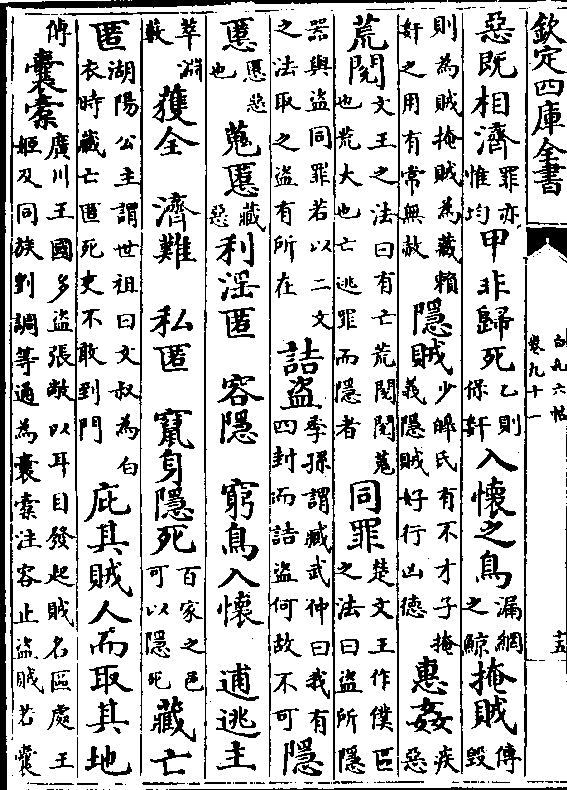 欽定四庫全書
白孔六帖
卷九十一
十五
惡既相濟罪亦惟均甲非歸死乙則保奸入懷之鳥漏網之鯨掩賊傳毀
則為賊掩賊為藏賴奸之用有常無赦隱賊少皞氏有不才子掩義隱賊好行凶德惠姦疾惡
荒閱文王之法曰有亡荒閱閱蒐也荒大也亡逃罪而隱者同罪楚文王作僕區之法曰盜所隱
器與盜同罪若以二文之法取之盜有所在詰盜季孫謂臧武仲曰我有四封而詰盜何故不可隱
慝慝惡也蒐慝藏惡利淫匿容隱窮鳥入懷逋逃主
萃淵藪獲全濟難私匿竄身隱死百家之邑可以隱死藏亡
匿湖陽公主謂世祖曰文叔為白衣時藏亡匿死吏不敢到門庇其賊人而取其地
傳囊橐廣川王國多盜張敞以耳目發起賊名區處王姬及同族劉調等通為囊橐注容止盜賊若囊